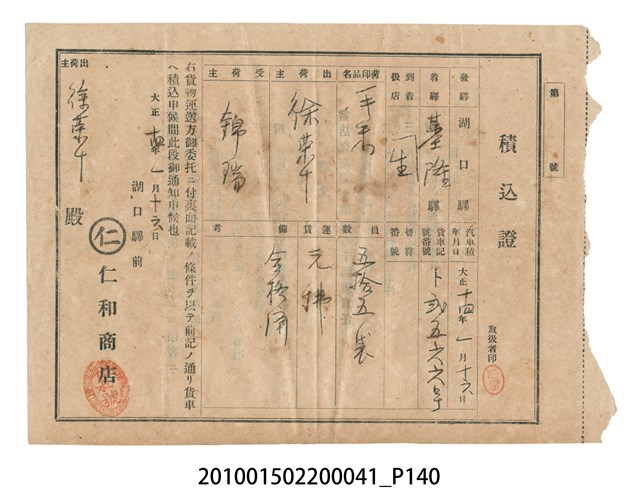 第 號
積込證
取扱者印
發驛 湖口驛
汽車積年月日 大正十四年一月十六日
着驛 基隆驛
貨車記號番號 ト弐五六六号
到着扱店
切符番號
荷印品名
員數 五拾五袋
出荷主 徐榮
運賃 元拂
受荷主 錦瑞
備考 金授済
右貨物運送方御委托ニ付裏面記載ノ條件ヲ以テ前記ノ通リ貨車
ヘ積込申候間此段御通知申候也
大正十四年一月十六日
湖口驛前
仁 仁和商店
出荷主 徐榮 殿
201001502200041_P140